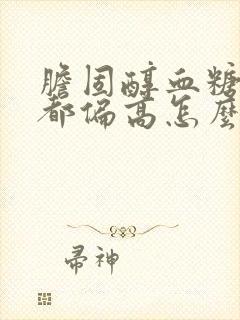 膽固醇血糖
都偏高怎麼
帚神